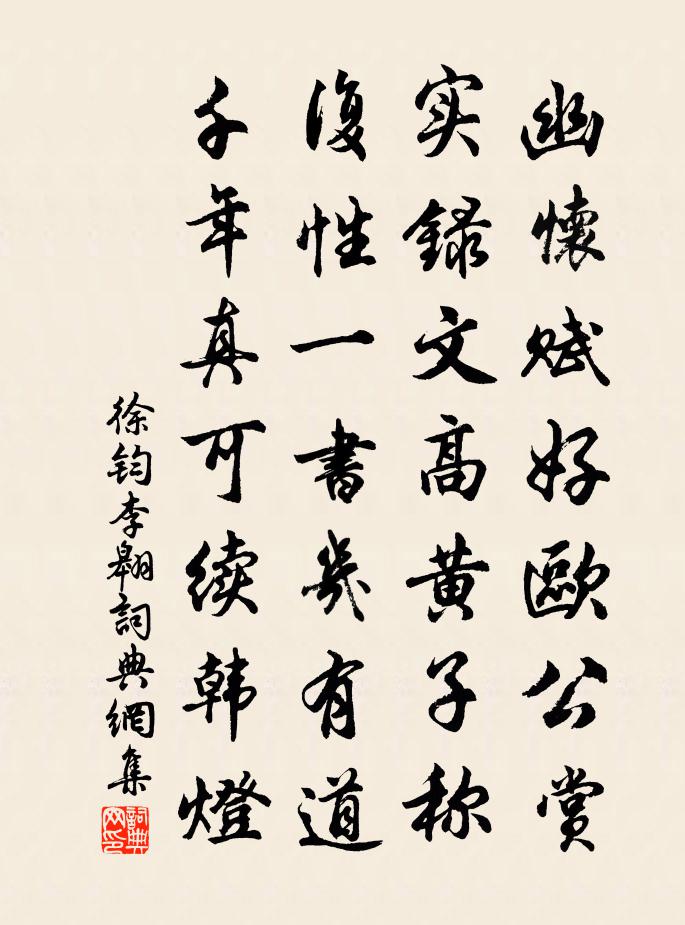 幽懷赋好歐公赏
实録文高黄子称
復性一書幾有道
千年真可续韩燈
徐鈞李翱詞典網集
詞典网印